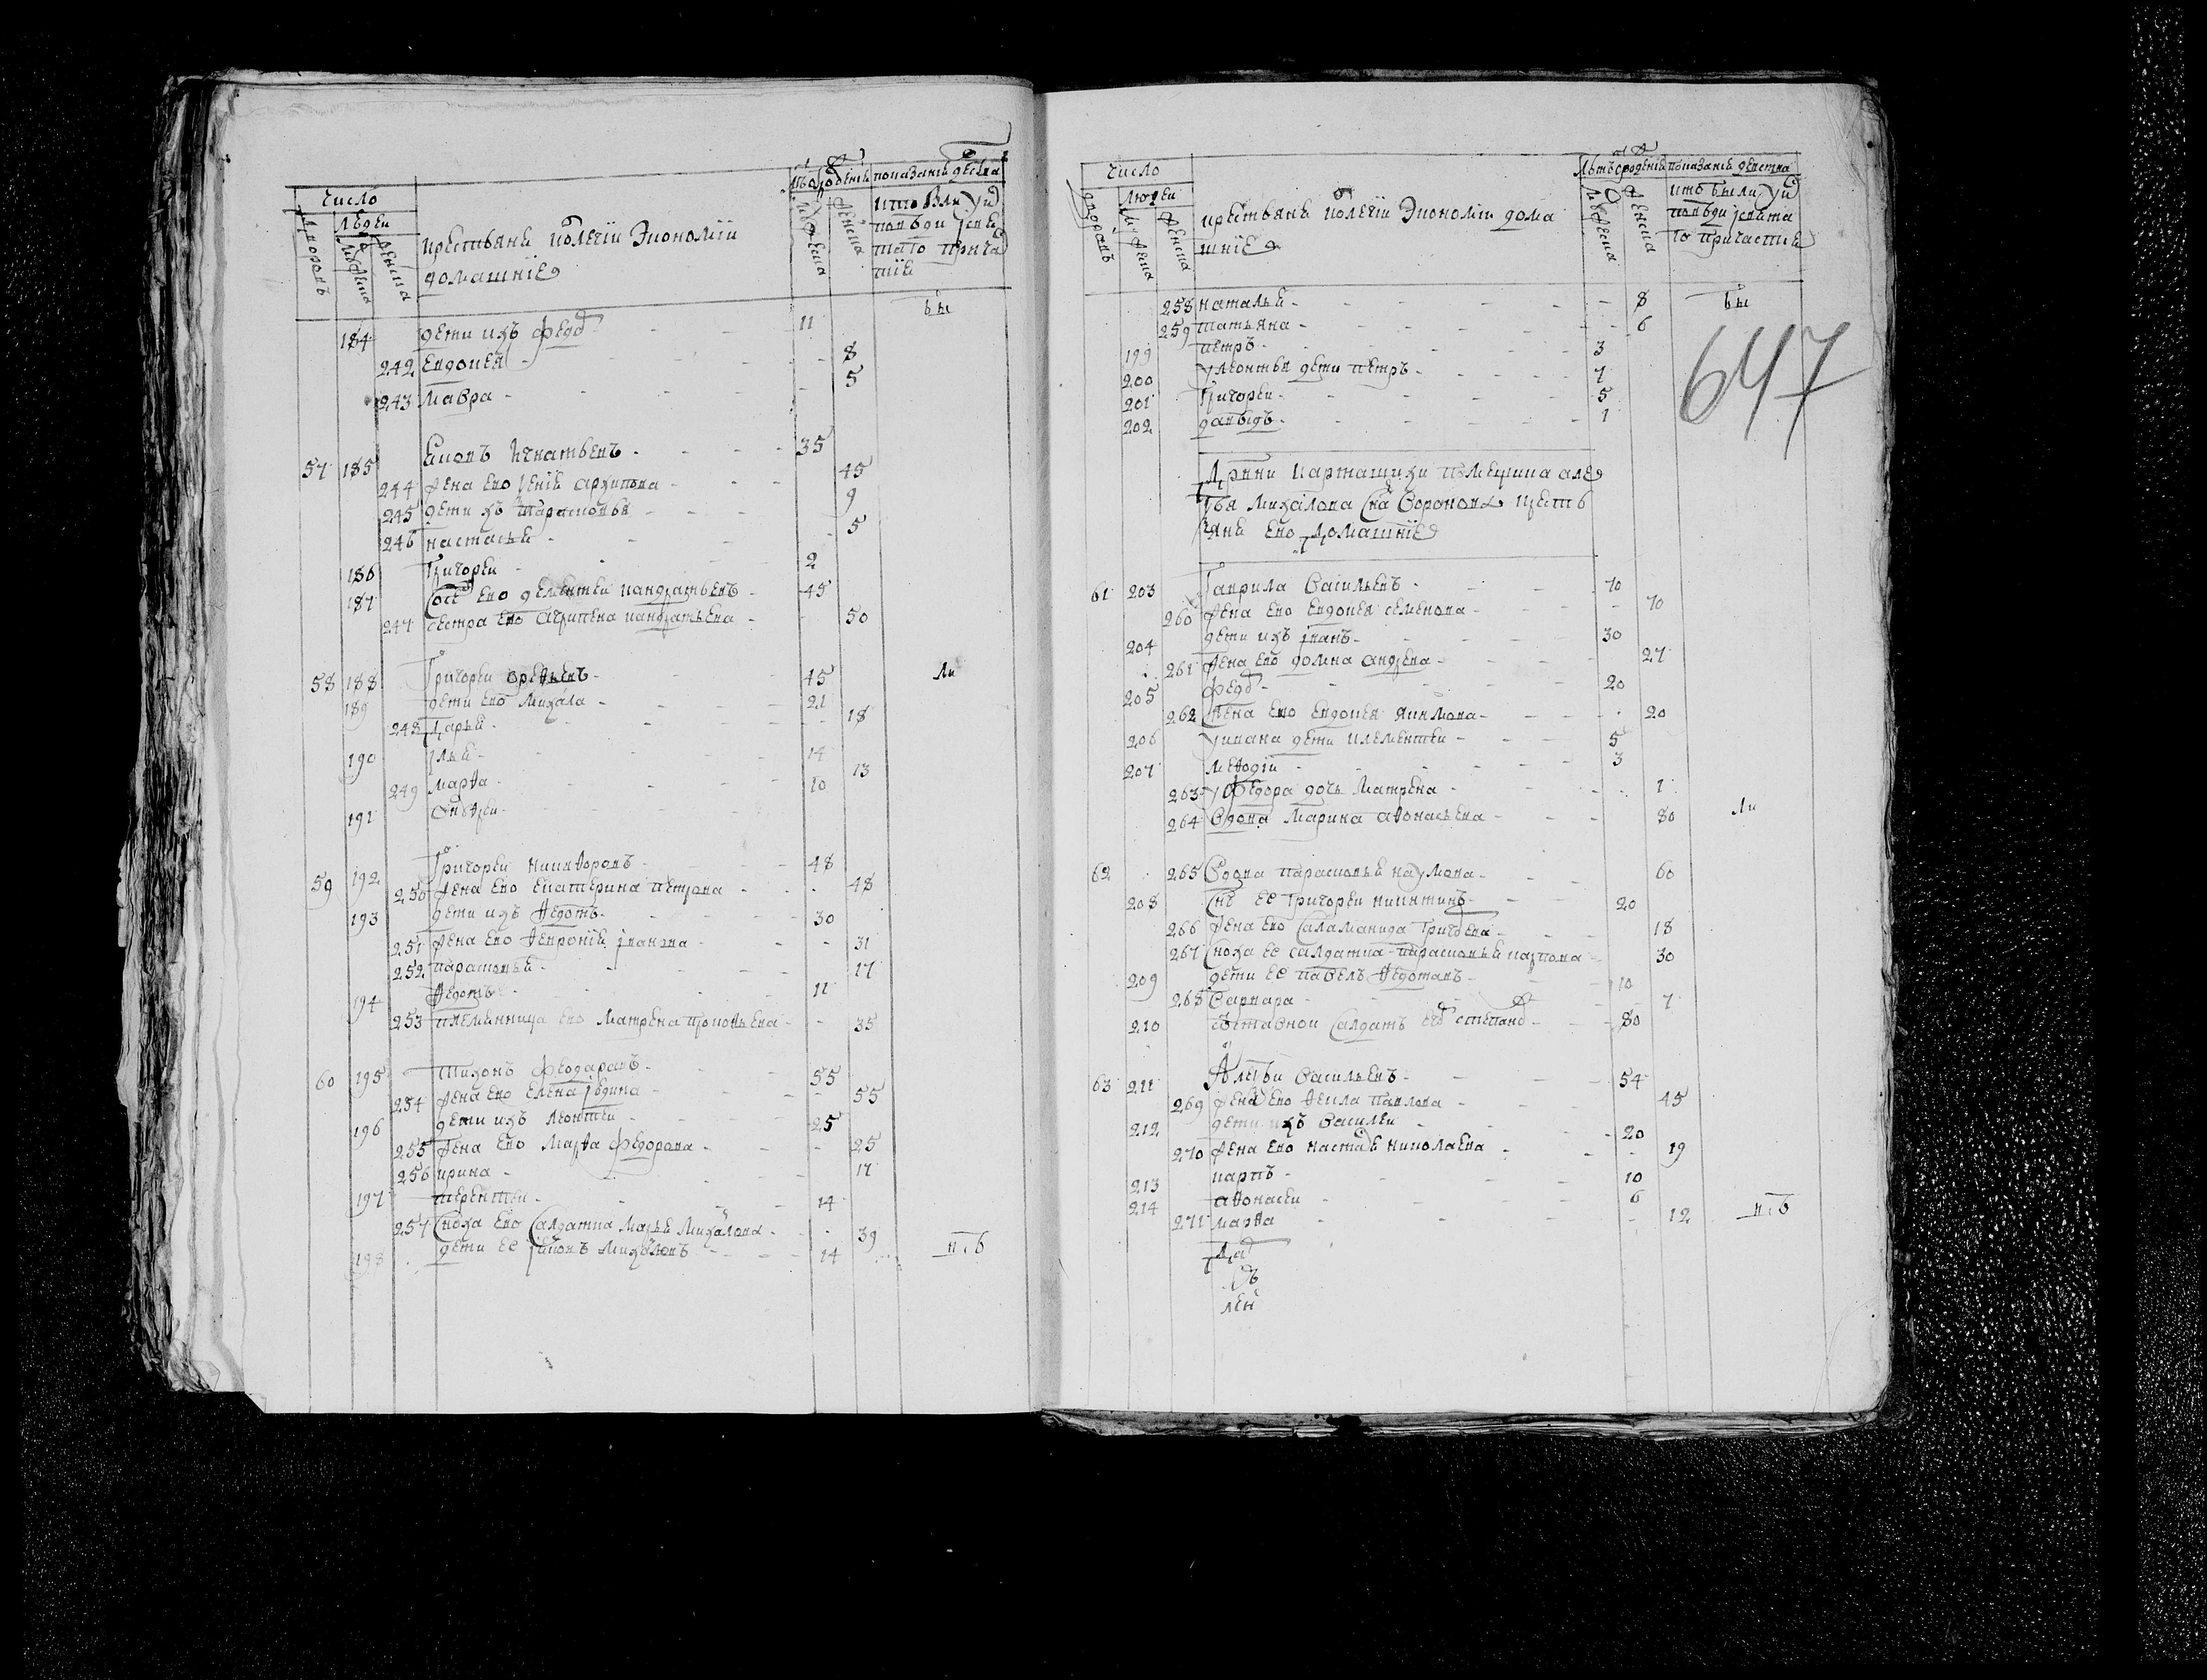 число
людей
дворовъ
мужеска
женска
крестьяне колегiи экономiи
домашнiе
лѣтъ от рождения
мужеска
женска
показание действа
кто были у исповеди и святаго причастия
184 дети ихъ федоръ - 11 бы
242 Евдокея - 8
243 мавра - 5
57 185 Симонъ Игнатьевъ - 35
244 жена ево ксения архипова - 45
245 дети ихъ парасковья - 9
246 настасья - 5
186 Григореи - 2
187 Соседъ ево дементеи кандратьевъ - 45
247 сестра ево агрипена кандратьева - 50
58 188 Григореи арефьевъ - 45 ли
189 дети ево михаила - 21
248 дарья - 18
190 илья - 14
249 марфа - 13
191 Андреи - 10
59 192 Григореи никифоровъ - 48
250 жена ево екатерина петрова - 48
193 дети ихъ федотъ - 30
251 жена ево феврония иванова - 31
252 парасковья - 17
194 федотъ - 11
253 племянница ево матрена прокофьева - 35
60 195 Тихонъ феодаровъ - 55
254 жена ево елена iевлева - 55
196 дети ихъ леонтеи - 25
255 жена ево марфа федорова - 25
256 ирина - 17
197 терентеи - 14
257 сноха ево салдатка марья михаилова - 39
198 дети ее михаиловъ - 14 п.б
число
людей
дворовъ
мужеска
женска
крестьяне колегiи экономiи дома
шнiе
лѣтъ от рождения
мужеска
женска
показание действа
кто были у исповеди и свята
го причастия
258 наталья - 8 бы
259 татьяна - 6
647
199 петръ - 3
200 у леонтья дети петръ - 7
201 Григореи - 5
202 давыдъ - 1
Дрвни карташихи помещика але
ѯѣя михаилова сна Воронова кресть
яне ево домашнiе
61 203 Гаврила Васильевъ - 70
260 жена ево евдокея семенова - 70
204 дети ихъ иванъ - 30
261 жена ево домна андреева - 27
205 федоръ - 20
262 жена ево евдокея якимова - 20
206 у ивана дети клементеи - 5
207 мефодiи - 3
263 у федора дочь матрена - 1
264 Вдова марина афонасьева - 80 ли
62 265 Вдова парасковья наумова - 60
208 снъ ее григореи никитинъ - 20
266 жена ево саламанида григорьева - 18
267 сноха ее салдатка парасковья карпова - 30
209 дети ее павелъ федотавъ - 10
268 Варвара - 7
210 отставнои салдатъ егоръ степановъ - 80
63 211 Алеѯѣи Васильевъ - 54
269 жена ево фекла павлова - 45
212 дети ихъ василеи - 20
270 жена ево настасья николаева - 19
213 карпъ - 10
214 афонасеи - 6
271 марфа - 12 п.б